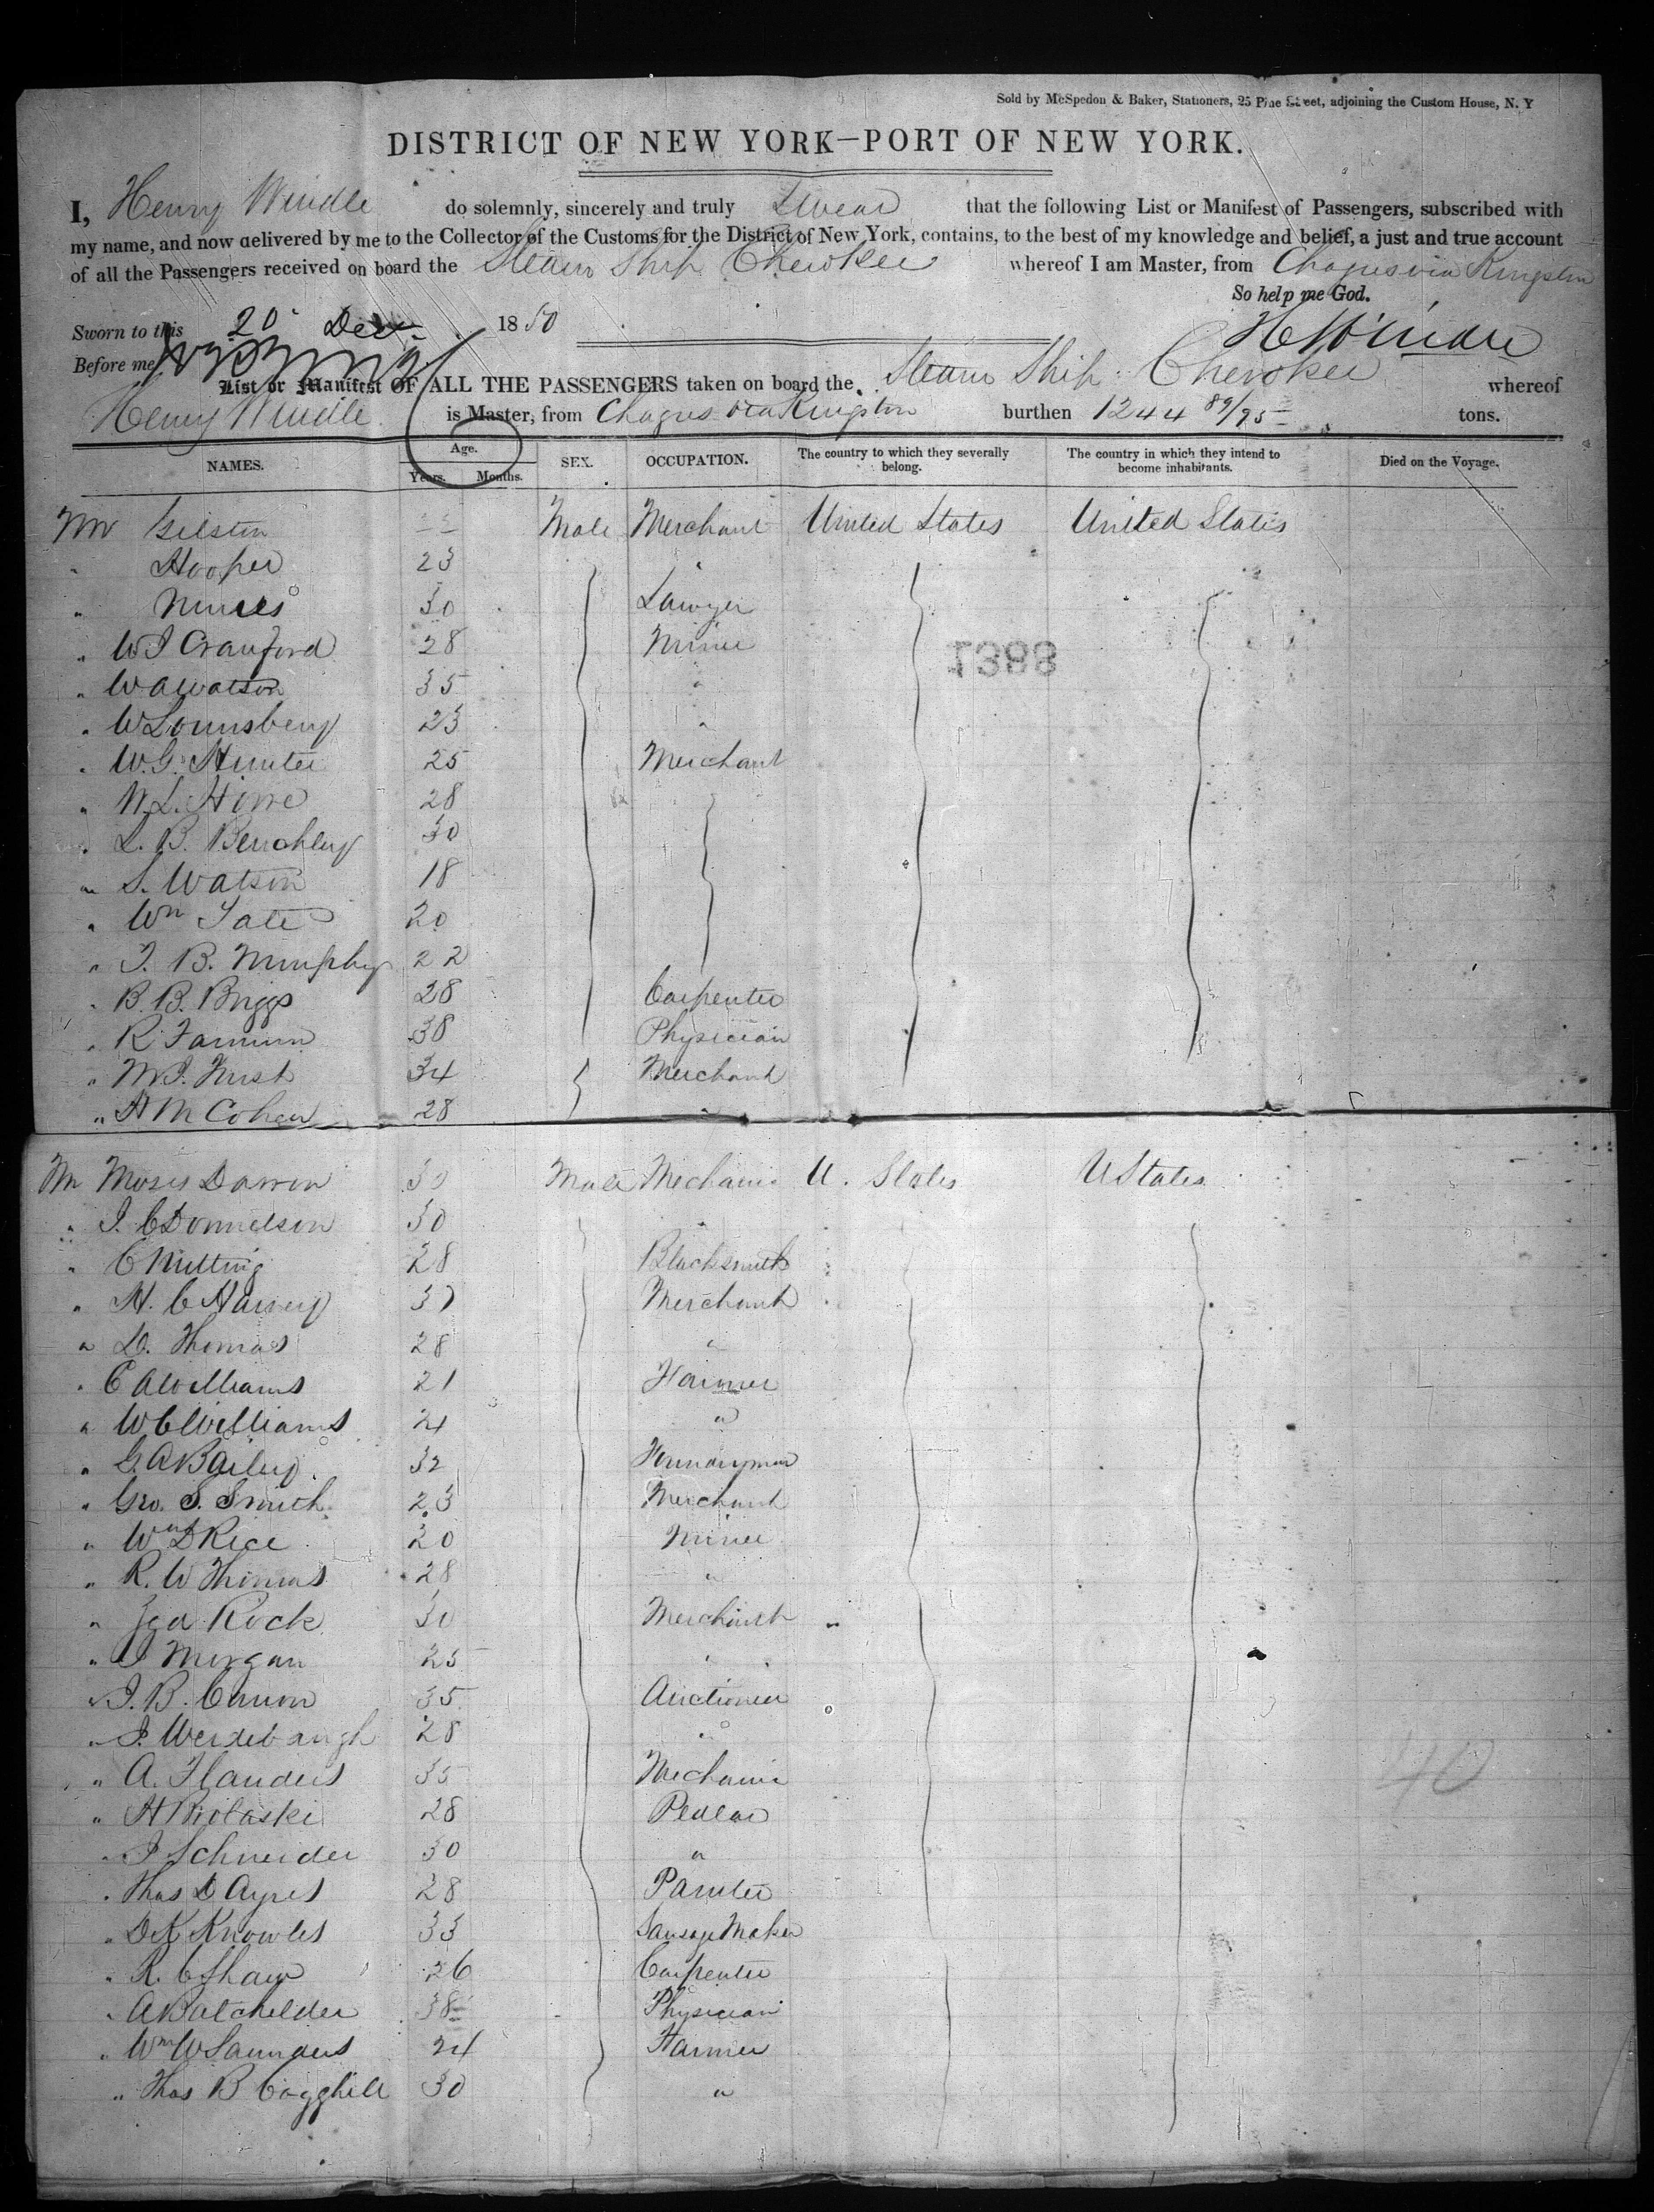 Sold by McSpedon & Baker, Stationers, 25 Pine Street, adjoining the Custom House, N. Y
DISTRICT OF NEW YORK—PORT OF NEW YORK.
I, Henry Windle do solemnly, sincerely and truly Swear that the following List or Manifest of Passengers, subscribed with
my name, and now delivered by me to the Collector of the Customs for the District of New York, contains, to the best of my knowledge and belief, a just and true account
of all the Passengers received on board the Steam Ship Cherokee whereof I am Master, from Chagres via Kingston
So help me God.
Sworn to this 20 Dec 1850
H Windle
Before me
List or Manifest OF ALL THE PASSENGERS taken on board the Steam Ship Cherokee whereof
Henry Windle is Master, from Chagres via Kingston burthen 1244 89/95 tons.
NAMES. Age. Years. Months. SEX. OCCUPATION. The country to which they severally belong. The country in which they intend to become inhabitants. Died on the Voyage.
Mr Gilston Male Merchant United States United States
" Hooper 23
" 30 Lawyer
" W J Crauford 28 Miner
1388
" W A Watson 35 "
" W Lounsbery 23 "
" W. G. Hunter 25 Merchant
" W. L. Howe 28
" L. B. Benchley 30
" S. Watson 18
" Wm Tate 20
" T. B. Murphy 22
" B. B. Briggs 28 Carpenter
" R Farnum 38 Physician
" 34 Merchant
" H M Cohen 28 "
Mr Moses 30 Male Mechanic U. States U States
" J. C Donnelson 30 "
" C Nutting 28 Blacksmith
" H. C Harvey 37 Merchant
" D. Thomas 28 "
" C A Williams 21 Farmer
" W C Williams 24 "
" G. A Bailey 32
" Geo. S. Smith 23 Merchant
" Wm D Rice 20 Miner
" R. W Thomas 28 "
" Rock 30 Merchant
" J Morgan 25 "
" J. B. 35 Auctioneer
" J. Weidebaugh 28 "
" A. Flanders 35 Mechanic
40
" H 28 Pedlar
" J Schneider 30 "
" Thos D Ayres 28 Painter
" D K Knowles 33 Sausage Maker
" R. C Shaw 26 Carpenter
" A Batchelder 38 Physician
" Wm W Saunders 24 Farmer
" Thos B Cogghill 30 "